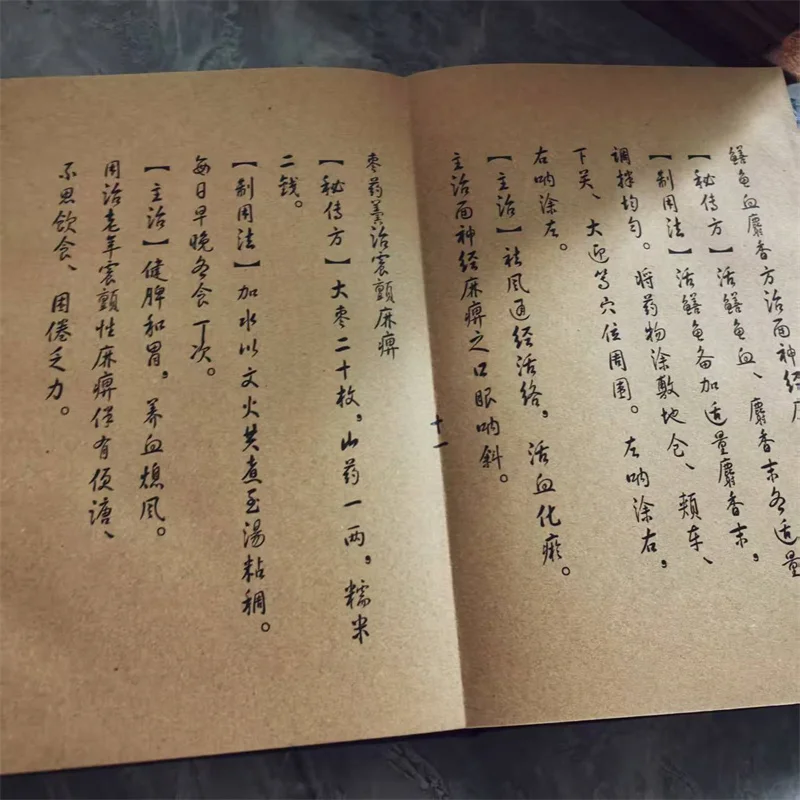 鳝鱼血麝香方治面神经麻
【秘传方】活鳝鱼血、麝香末各适量
【制用法】活鳝鱼备加适量麝香末，
调拌均匀。将药物涂敷地仓、颊车、
下关、大迎等穴位周围。左呐涂右，
右呐涂左。
【主治】祛风通经活络，活血化瘀。
主治面神经麻痹之口眼呐斜。
十一
枣药羹治震颤麻痹
【秘传方】大枣二十枚，山药一两，糯米
二钱。
【制用法】加水以文火共煮至汤粘稠。
每日早晚各食一次。
【主治】健脾和胃，养血熄风。
用治老年震颤性麻痹伴有便溏、
不思饮食、困倦乏力。